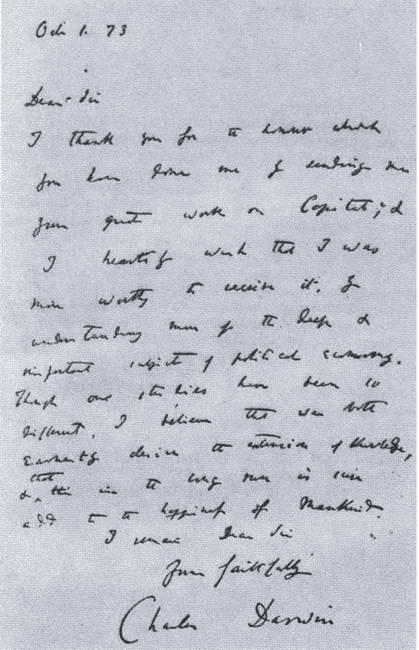 Oct 1. 73
Dear Sir
I thank you for the honour which
you have done me by sending me
your great work on Capital; &
I heartily wish that I was
more worthy to receive it, by
understanding more of the deep &
important subject of political economy.
Though our studies have been so
different, I believe that we both
earnestly desire the extension of knowledge,
& that this in the long run is sure
add to the happiness of Mankind.
I remain Dear Sir
Yours faithfully
Charles Darwin